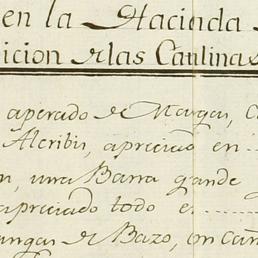 en la Hacinda
icion de las Caulinas
aperado de Mangas, C
Alcribis, apreciado en
n, una Barra grande
apreciado todo en
angas de Bazo, con Cañ